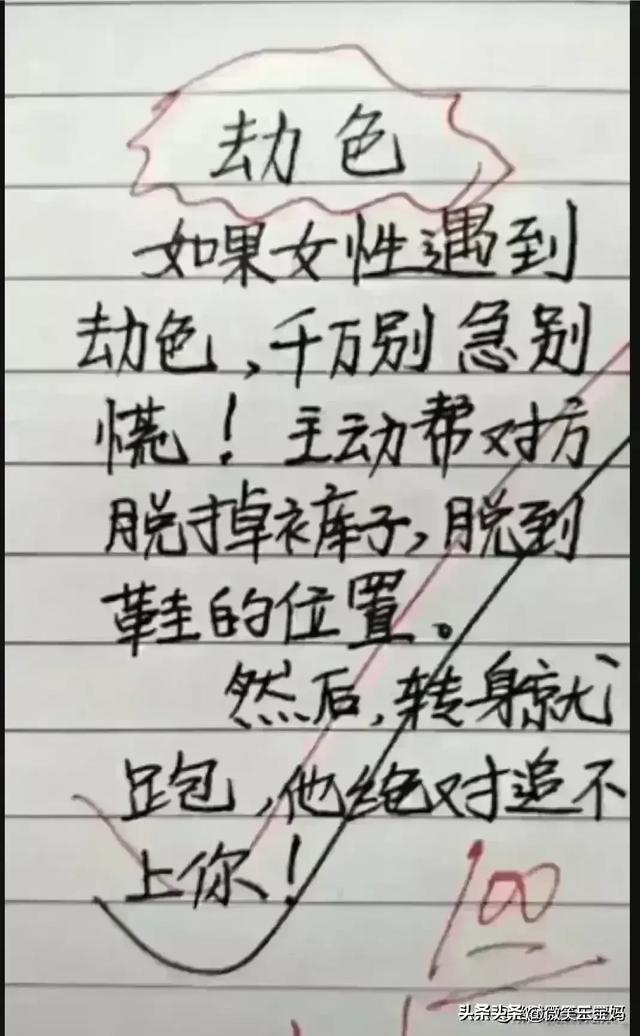 劫色
如果女性遇到
劫色,千万别急别
慌!主动帮对方
脱掉裤子,脱到
鞋的位置。
然后,转身就
跑,他绝对追不
上你!
100